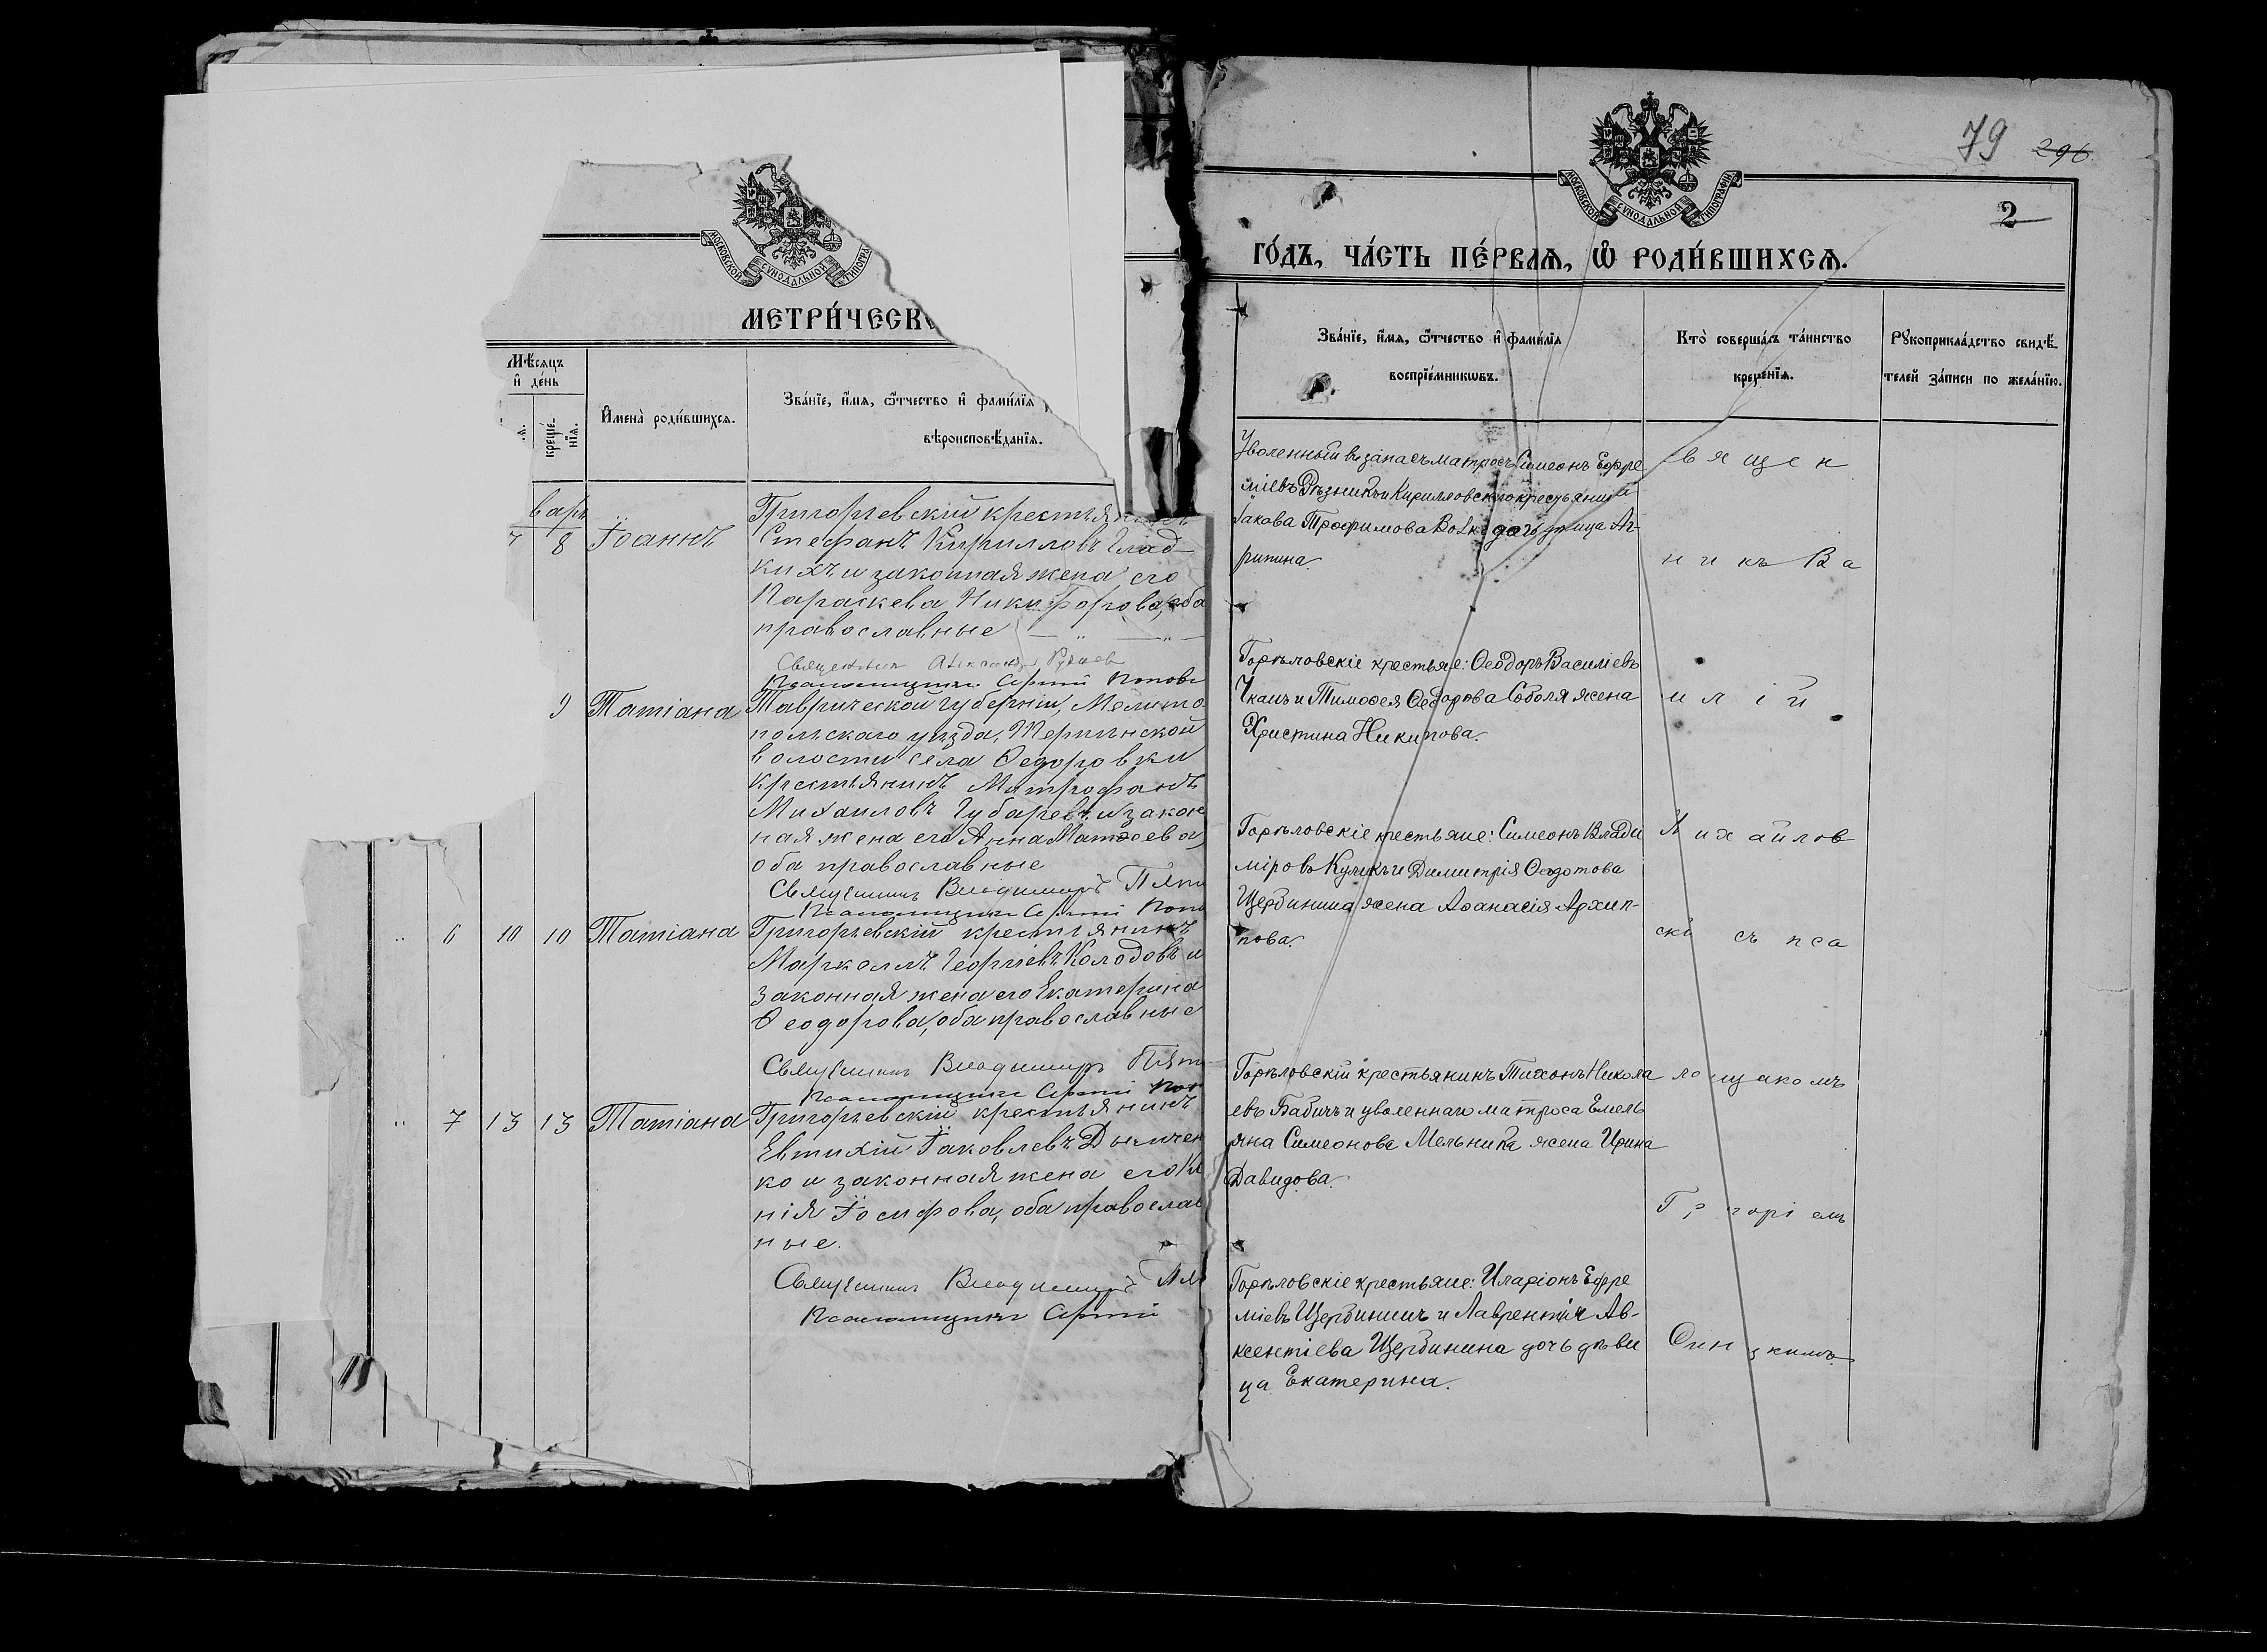 МОСКОВСКОЙ СУНОДАЛЬНОЙ ТИПОГРА
МЕТРИ́ЧЕСК
Мѣсяцъ
и де́нь
креще́нїя.
Имена̀ роди́вшихся.
Зва́нїе, и҆́мя, ѻ҆́тчество и҆ фами́лїя
вѣроисповѣ́данїя.
варь
7 8 Іоаннъ
Григорьевскій крестьянинъ
Стефанъ Кирилловъ Глад-
кихъ и законная жена его
Параскева Никифорова, оба
православные
Священникъ
Псаломщикъ Сергій Поповъ
9 Татіана
Таврической губерніи, Мелито
польскаго уѣзда,
волости села Ѳедоровки
крестьянинъ Митрофанъ
Михаиловъ Губаревъ и закон
ная жена его Анна Матѳеева,
оба православные
Священникъ Владимиръ
Псаломщикъ Сергій Попо
" 6 10 10 Татіана
Григорьевскій крестьянинъ
Маркеллъ Георгіевъ Колодовъ и
законная жена его Екатерина
Ѳеодорова, оба православные
Священникъ Владимиръ
Псаломщикъ Сергій Поп
" 7 13 13 Татіана
Григорьевскій крестьянинъ
Евтихій Іаковлевъ
ко и законная жена его
нія Іосифова, оба православ
ные.
Священникъ Владимиръ
Псаломщикъ Сергій
79 296
МОСКОВСКОЙ СУНОДАЛЬНОЙ ТИПОГРАФІИ
2
ГО́ДЪ, ЧА́СТЬ ПЕ́РВАЯ, Ѡ РОДИ́ВШИХСЯ.
Зва́нїе, и҆́мя, ѻ҆́тчество и҆ фами́лїя
воспрїе́мникѡвъ.
Кто̀ соверша́лъ та́инство
креще́нїя.
Рꙋкоприкла́дство свидѣ́-
телей за́писи по жела́нїю.
Уволенный въ запасъ матросъ Симеонъ Ефре
міевъ Рѣзникъ и Кирилловскаго крестьянина
Іакова Трофимова дочь дѣвица Аг-
рипина.
Горѣловскіе крестьяне: Ѳеодоръ Василіевъ
Ткачъ и Тимоѳея Ѳеодорова Соболя жена
Христина Никипова.
Горѣловскіе крестьяне: Симеонъ Влади
міровъ Куликъ и Димитрія Ѳеодотова
Щербинина жена Аѳанасія Архип-
пова.
Горѣловскій крестьянинъ Тихонъ Никола
евъ Бабичъ и уволеннаго матроса Емель
яна Симеонова Мельника жена Ирина
Давидова.
Горѣловскіе крестьяне: Иларіонъ Ефре
міевъ Щербининъ и Лаврентія Ав-
ксентіева Щербинина дочь дѣви
ца Екатерина.
священ
никъ Ва
илій
Михайлов
скій съ пса
ломщикомъ
Григоріемъ